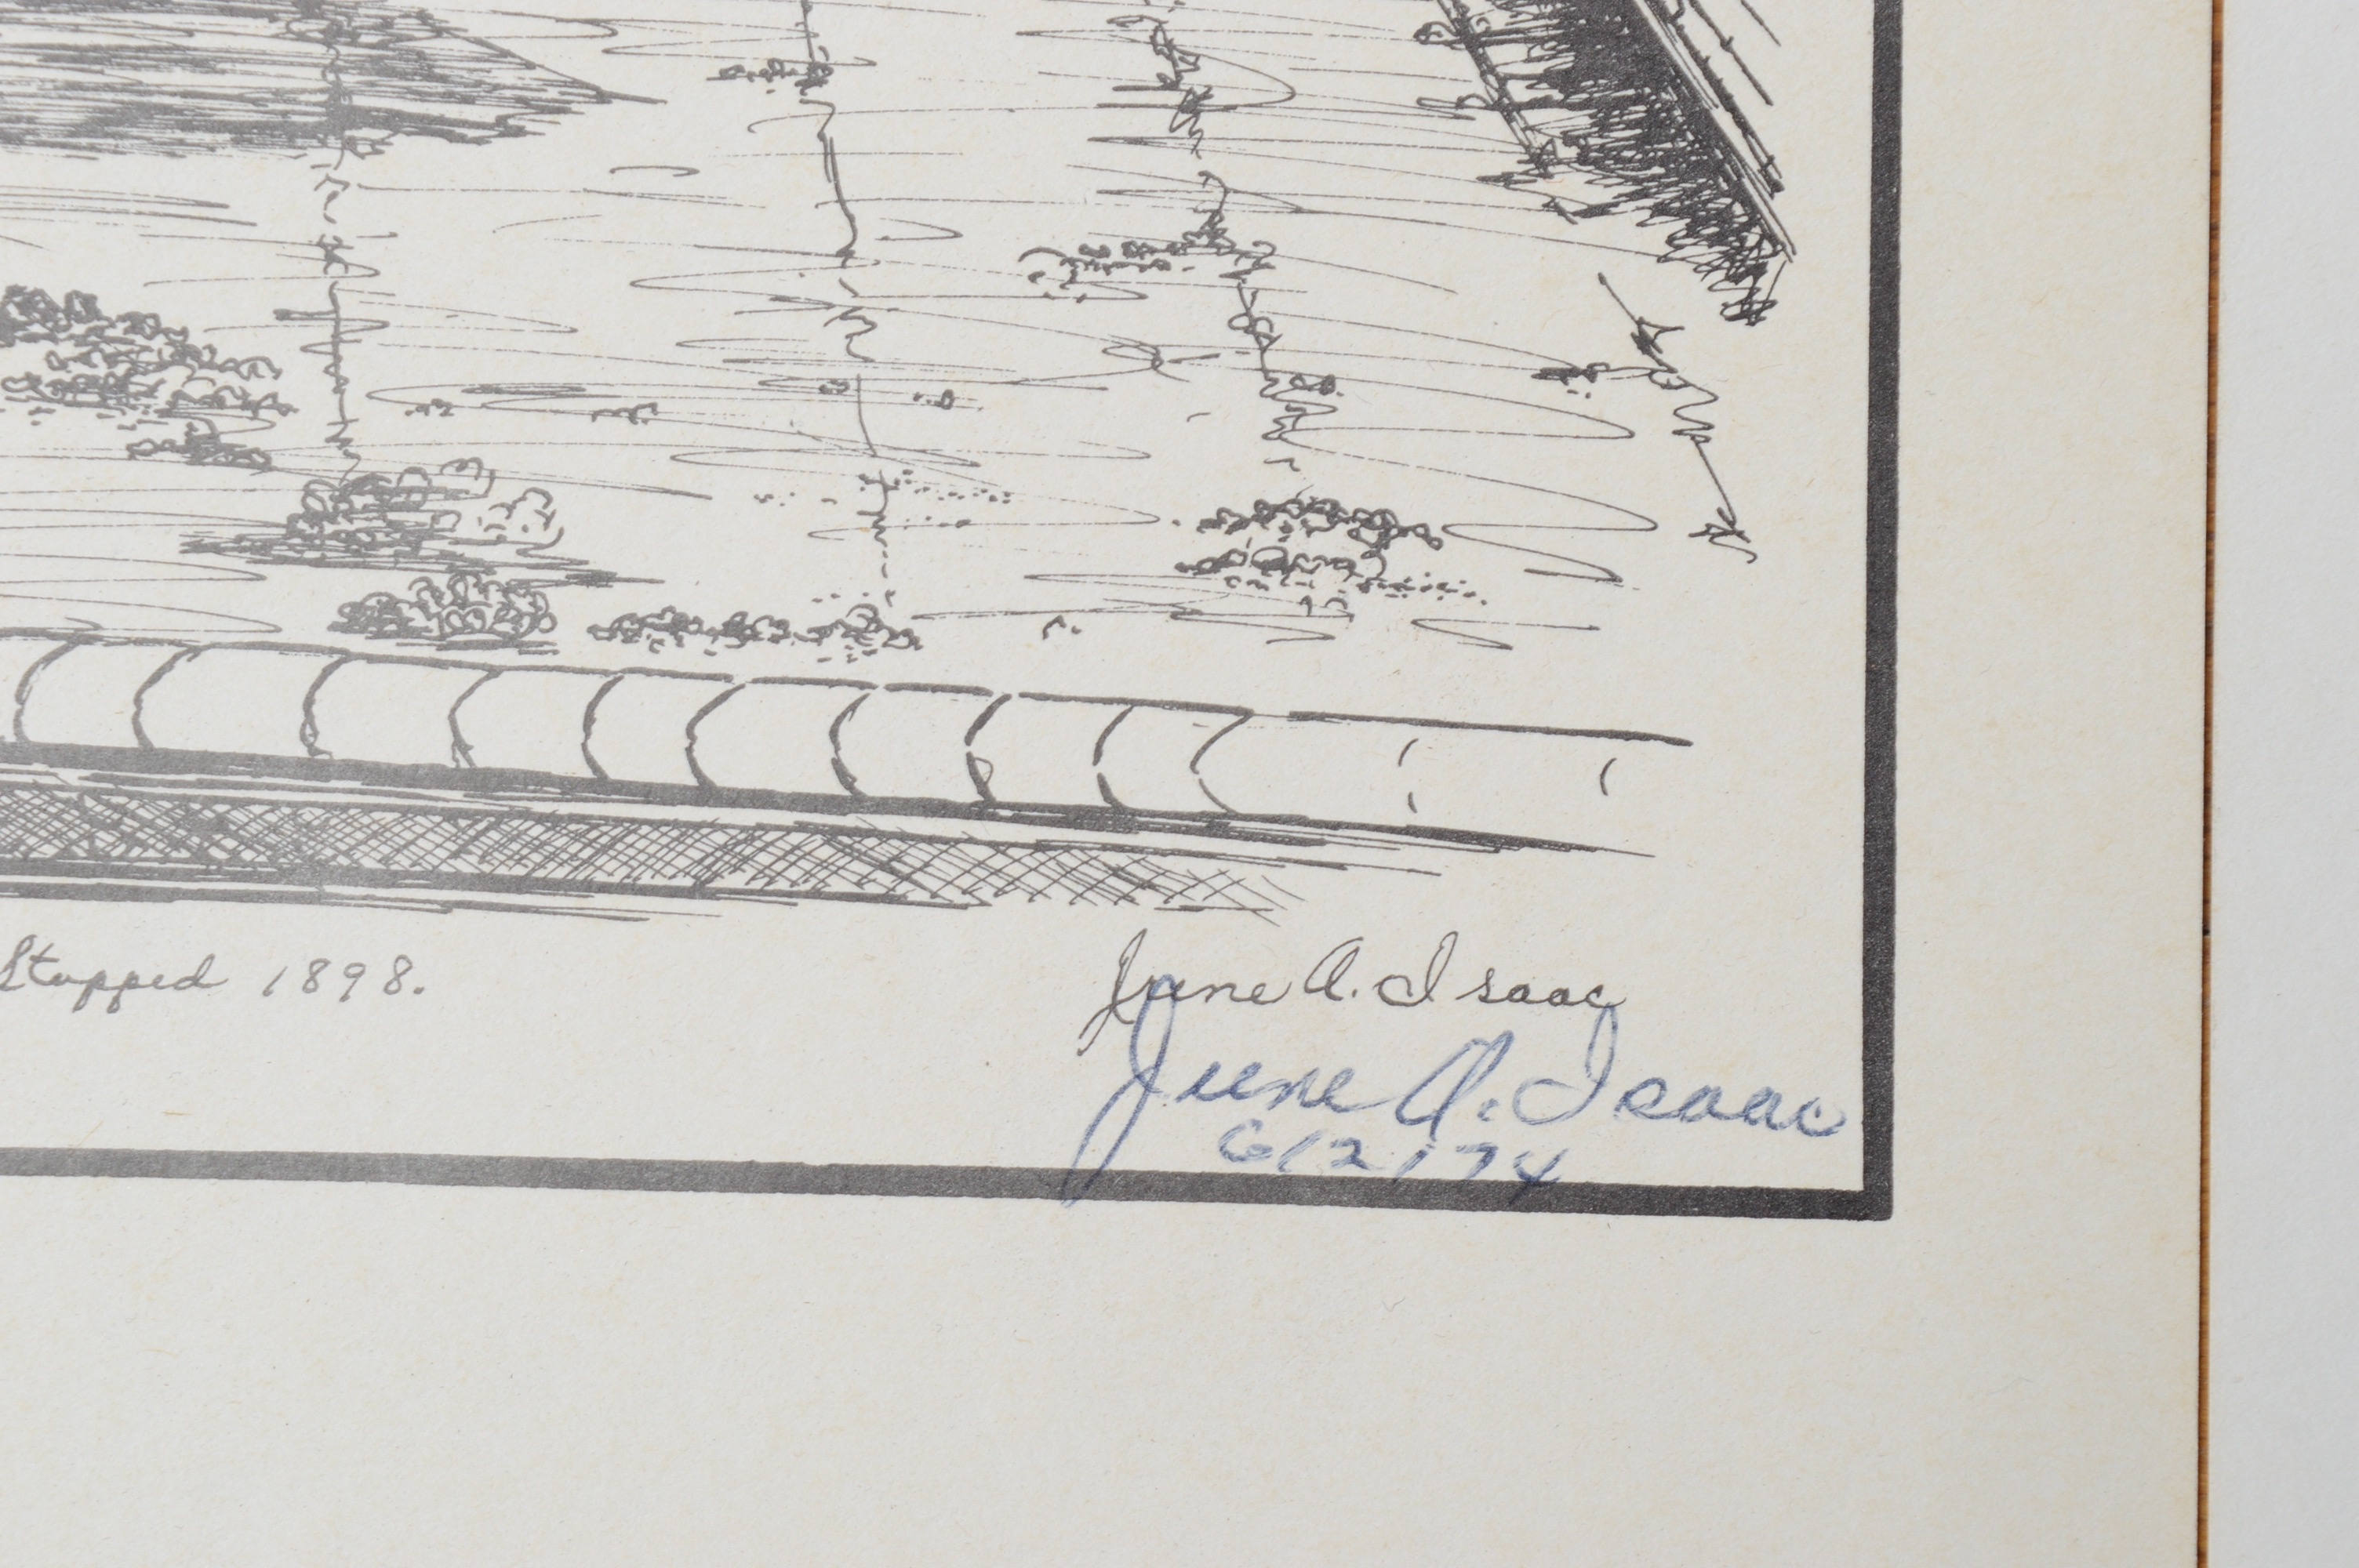 Stopped 1898.
June A. Isaac
June A. Isaac
6/2/74